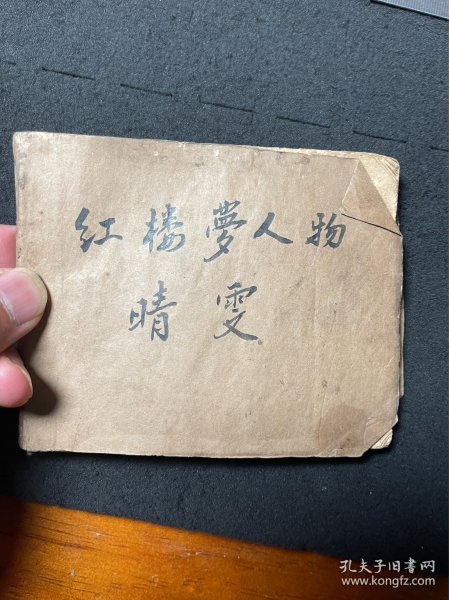 红楼梦人物
晴雯
孔夫子旧书网
www.kongfz.com